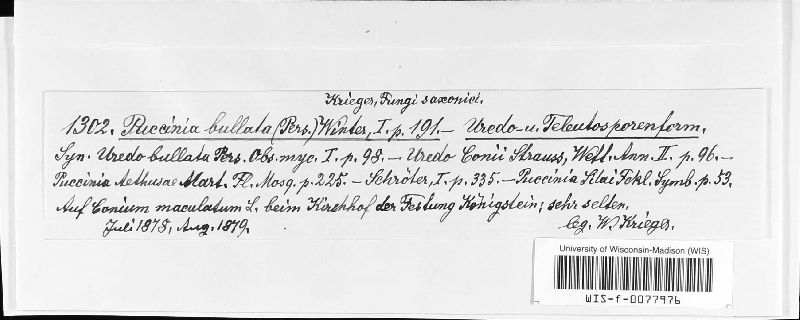 Krieger, Fungi saxonici.
1302. Puccinia bullata (Pers.) Winter, I. p. 191. — Uredo- u. Teleutosporenform.
Syn. Uredo bullata Pers. Obs. myc. I. p. 98. — Uredo Conii Strauss, Wett. Ann. II. p. 96. —
Puccinia Aethusae Mart. Fl. Mosq. p. 225. — Schröter, I. p. 335. — Puccinia Silai Fckl. Symb. p. 53.
Auf Conium maculatum L. beim Kirchhof der Festung Königstein; sehr selten.
Juli 1878, Aug. 1879.
leg. W. Krieger.
University of Wisconsin-Madison (WIS)
WIS-f-0077976